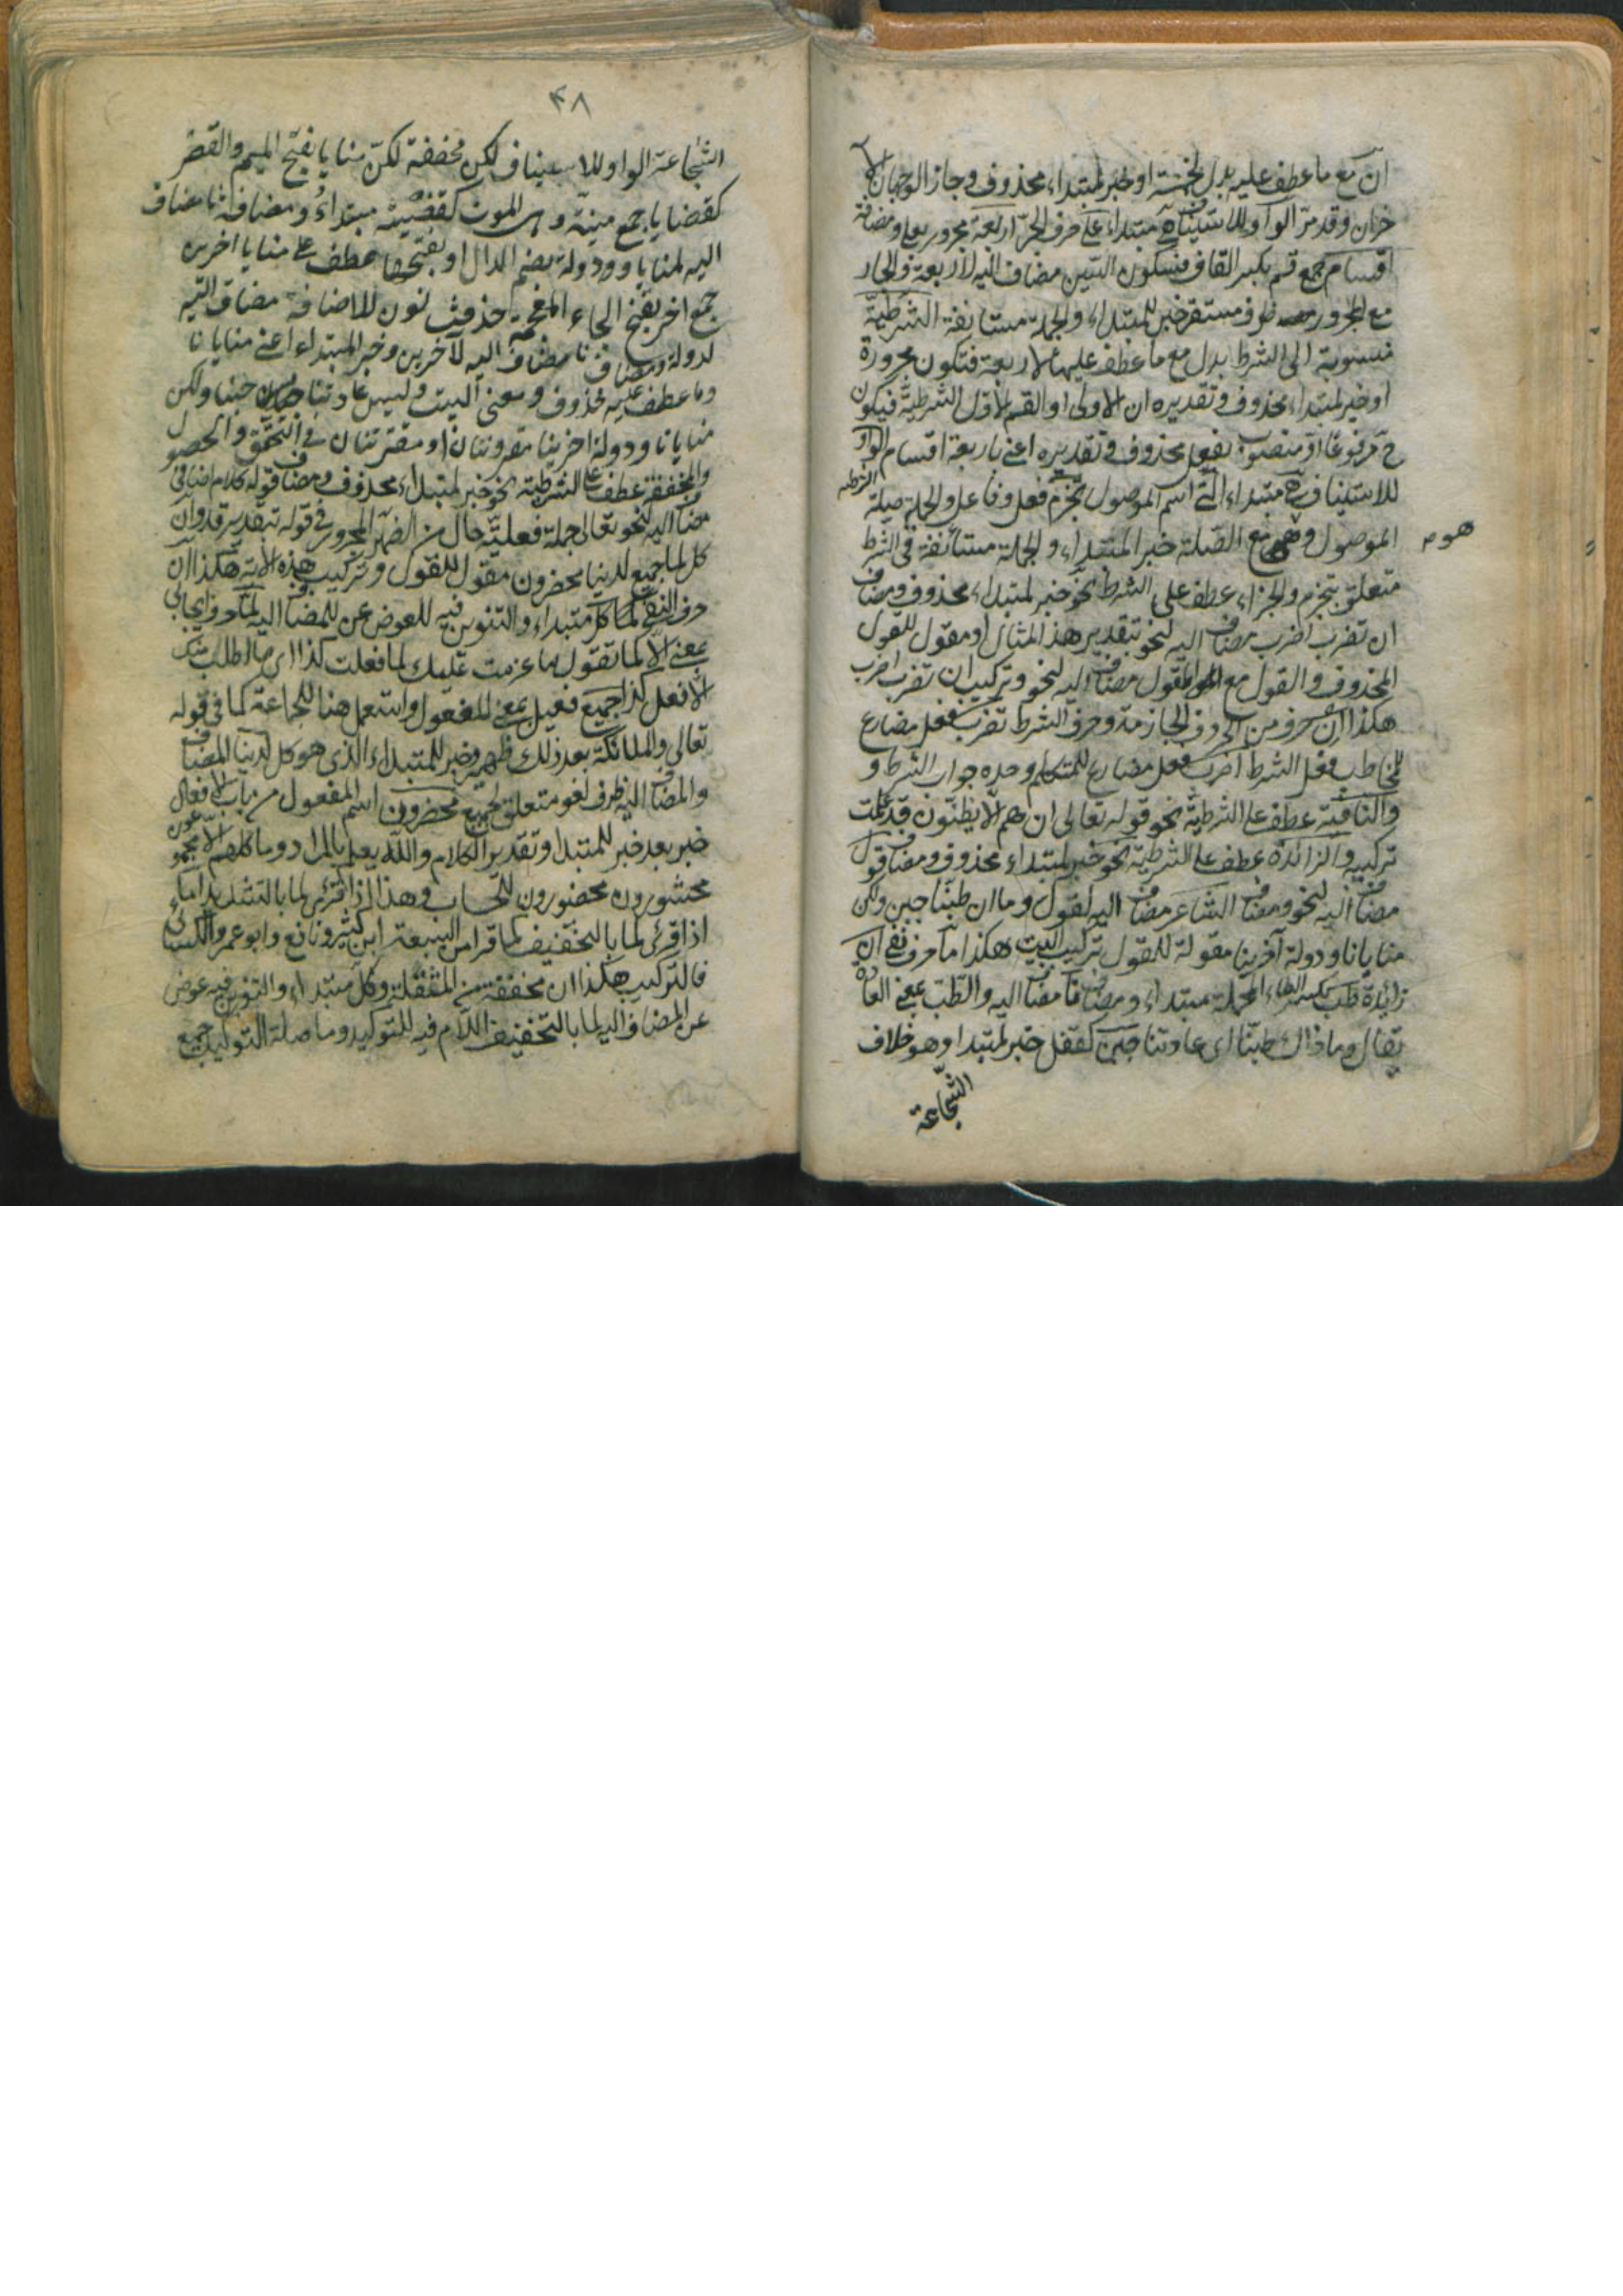 ان مع ما عطف عليه بدل لخمسة او خبر لمبتداء محذوف وجاز الوجهان الآ
خران وقد مرّ الواو للاستيناف هى مبتداء على حرف الجرّ اربعة مجرور بعلى ومضافة
اقسام جمع قسم بكسر القاف وسكون السّين مضاف اليه لاربعة والجار
مع المجرور ظرف مستقر خبر للمبتداء والجملة مستانفة الشرطيّة
منسوبة الى الشرط بدل مع ما عطف عليها لاربعة فتكون مجرورة
او خبر لمبتداء محذوف وتقديره ان الاولى او القسم الاول الشرطيّة فيكون
ح مرفوعًا او منصوب بفعل محذوف وتقديره اعنى باربعة اقسام الشرطيه الواو
للاستيناف هى مبتداء الّتى اسم الموصول تجزم فعل وفاعل والجملة صلة
الموصول وهو مع الصّلة خبر المبتداء والجملة مستأنفة فى الشرط
متعلق بتجزم والجزاء عطف على الشرط نحو خبر لمبتداء محذوف ومضاف
ان تضرب اضرب مضاف اليه لنحو بتقدير هذا المثال او مقول للقول
المحذوف والقول مع المقول مضاف اليه لنحو وتركيب ان تضرب اضرب
هكذا ان حرف من الحروف الجازمة وحرف الشرط تضرب فعل مضارع
للمخاطب فعل الشرط اضرب فعل مضارع للمتكلم وحده جواب الشرط و
والنافية عطف على الشرطيّة نحو قوله تعالى ان هم الّا يظنّون قد علمت
تركيبه والزائدة عطف على الشرطيّة نحو خبر لمبتداء محذوف ومضاف قول
مضاف اليه لنحو ومضاف الشاعر مضاف اليه لقول وما ان طبّنا جبن ولكن
منايانا ودولة آخرينا مقولة للقول تركيب البيت هكذا ما حرف نفى ان
زايدة طبّ بكسر الطاء المهملة مبتداء ومضاف نا مضاف اليه والطّب بمعنى العادة
يقال وما ذاك طبّنا اى عادتنا جبن كقفل خبر لمبتدا وهو خلاف
الشّجاعة
هوم
۴۸
الشّجاعة الواو للاستيناف لكن مخففة لكنّ منايا بفتح الميم والقصر
كقضايا جمع منيّة وهى الموت كقضيّة مبتداءٌ ومضافة نا مضاف
اليه لمنايا ودولة بضم الدال او بفتحها عطف على منايا اخرين
جمع اخر بفتح الخاء المعجمة حذفت نون للاضافة مضاف اليه
لدولة ومضاف نا مضاف اليه لآخرين وخبر المبتداء اعنى منايانا
وما عطف عليه محذوف ومعنى البيت وليس عادتنا جبنا ولكن
منايانا ودولة اخرينا مقرونتان او مقترنتان فى التحقّق والحصول
والمخففة عطف على الشرطيّة نحو خبر لمبتداء محذوف ومضاف قوله كلام اضافى
مضاف اليه لنحو تعالى جملة فعليّة حال من الضمير المجرور فى قوله بتقدير قد وان
كل لما جميع لدينا محضرون مقول للقول وتركيب هذه الآية هكذا ان
حرف النفى لمّا كل مبتداء والتنوين فيه للعوض عن المضاف اليه لمّا حرف ايجابى
بمعنى الّا كما تقول ما عزمت عليك لما فعلت كذا اى ما اطلب منك
الّا فعل كذا جميع فعيل بمعنى المفعول واستعمل هنا للجماعة كما فى قوله
تعالى والملائكة بعد ذلك ظهير وخبر للمبتداء الذى هو كل لدينا المضاف
والمضاف اليه ظرف لغو متعلق لجميع محضرون اسم المفعول من باب الافعال
خبر بعد خبر للمبتدا وتقدير الكلام والله يعلم بالمراد وما كلهم الّا مجموعون
محشورون محضورون للحساب وهذا اذا قرئ لما بالتشديد اما
اذا قرئ لما بالتخفيف كما قرا من السبعة ابن كثير ونافع وابو عمر والكسائى
فالتركيب هكذا ان مخففة من المثقلة وكل مبتداء والتنوين فيه عوض
عن المضاف اليه لما بالتخفيف اللّام فيه للتوكيد وما صلة التوكيد جميع